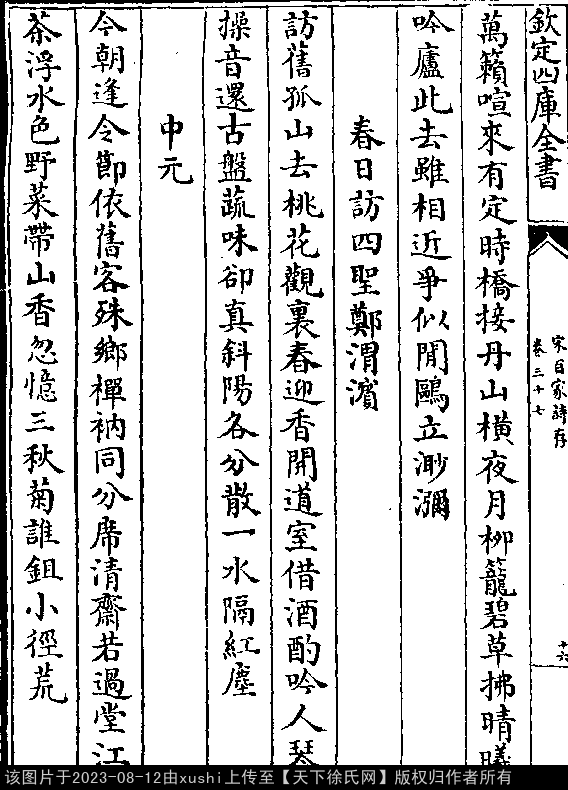 欽定四庫全書
宋百家詩存
卷三十七
十六
萬籟喧來有定時橋接丹山橫夜月柳籠碧草拂晴曦
吟廬此去雖相近爭似閒鷗立渺瀰
春日訪四聖鄭渭濱
訪舊孤山去桃花觀裏春迎香開道室借酒酌吟人琴
操音還古盤蔬味卻真斜陽各分散一水隔紅塵
中元
今朝逢令節依舊客殊鄉禪衲同分席清齋若過堂江
茶浮水色野菜帶山香忽憶三秋菊誰鉏小徑荒
该图片于2023-08-12由xushi上传至【天下徐氏网】版权归作者所有